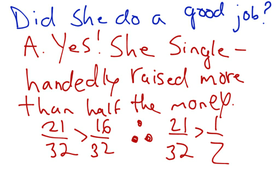 Did she do a good job?
A. Yes! She Single-
handedly raised more
than half the money.
21/32 > 16/32 ∴ 21/32 > 1/2